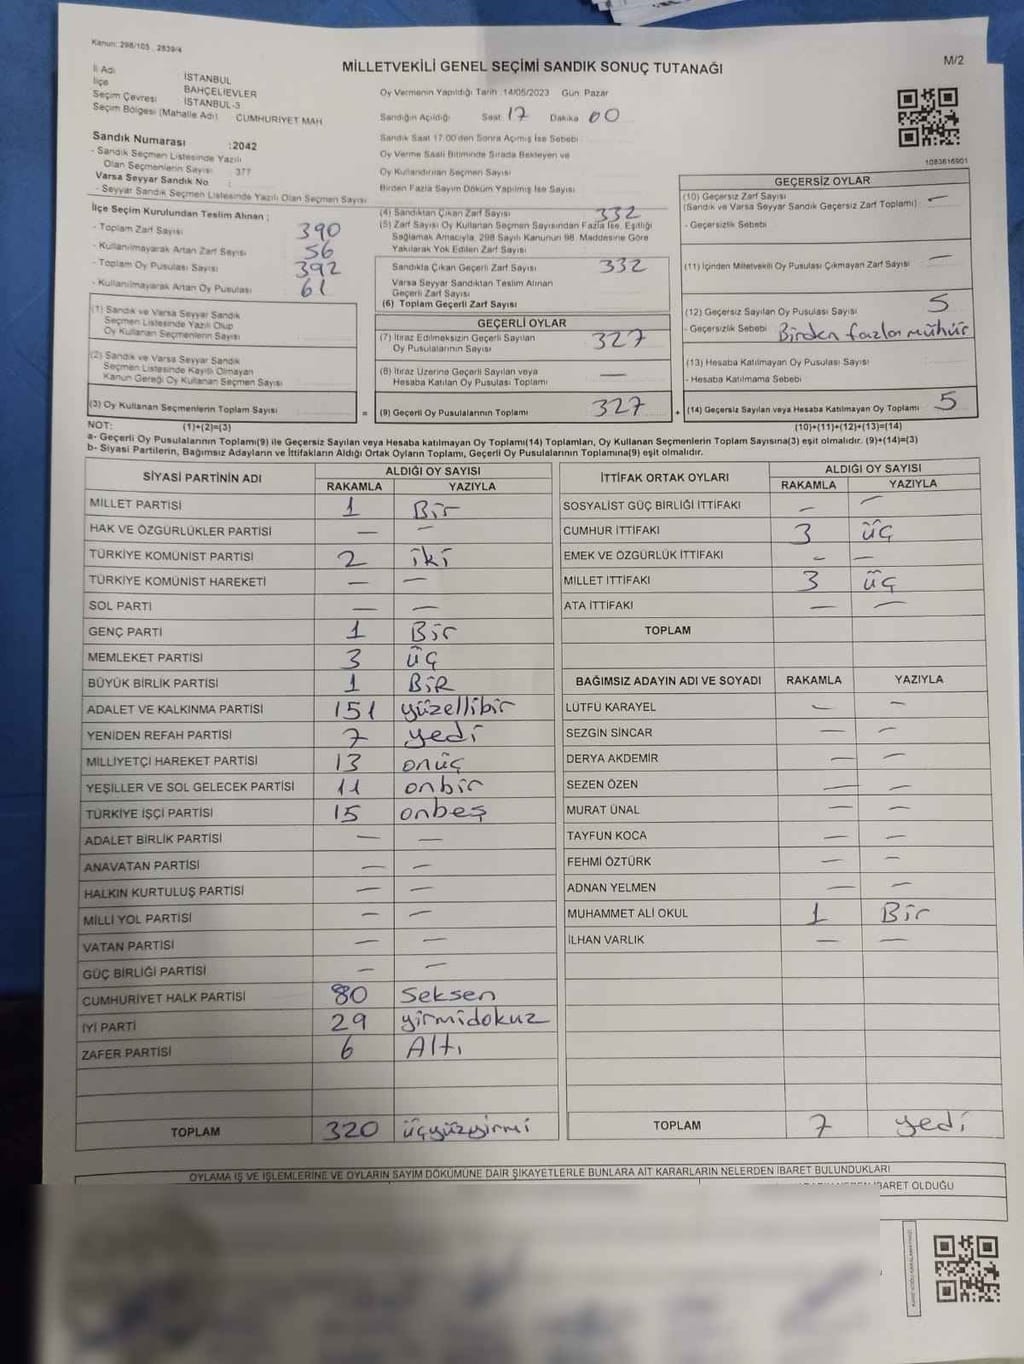 Kanun: 298/105, 2839/4
M/2
MİLLETVEKİLİ GENEL SEÇİMİ SANDIK SONUÇ TUTANAĞI
İl Adı İSTANBUL
İlçe BAHÇELİEVLER
Seçim Çevresi İSTANBUL-3
Seçim Bölgesi (Mahalle Adı) CUMHURİYET MAH
Sandık Numarası :2042
- Sandık Seçmen Listesinde Yazılı
Olan Seçmenlerin Sayısı 377
Varsa Seyyar Sandık No :
- Seyyar Sandık Seçmen Listesinde Yazılı Olan Seçmen Sayısı
Oy Vermenin Yapıldığı Tarih :14/05/2023 Gün: Pazar
Sandığın Açıldığı Saat 17 Dakika 00
Sandık Saat 17:00'den Sonra Açılmış İse Sebebi
Oy Verme Saati Bitiminde Sırada Bekleyen ve
Oy Kullandırılan Seçmen Sayısı
Birden Fazla Sayım Döküm Yapılmış İse Sayısı
1083616901
İlçe Seçim Kurulundan Teslim Alınan ;
- Toplam Zarf Sayısı 390
- Kullanılmayarak Artan Zarf Sayısı 56
- Toplam Oy Pusulası Sayısı 392
- Kullanılmayarak Artan Oy Pusulası 61
(1) Sandık ve Varsa Seyyar Sandık
Seçmen Listesinde Yazılı Olup
Oy Kullanan Seçmenlerin Sayısı
(2) Sandık ve Varsa Seyyar Sandık
Seçmen Listesinde Kayıtlı Olmayan
Kanun Gereği Oy Kullanan Seçmen Sayısı
(3) Oy Kullanan Seçmenlerin Toplam Sayısı =
(4) Sandıktan Çıkan Zarf Sayısı 332
(5) Zarf Sayısı Oy Kullanan Seçmen Sayısından Fazla İse, Eşitliği
Sağlamak Amacıyla, 298 Sayılı Kanunun 98. Maddesine Göre
Yakılarak Yok Edilen Zarf Sayısı
Sandıkta Çıkan Geçerli Zarf Sayısı 332
Varsa Seyyar Sandıktan Teslim Alınan
Geçerli Zarf Sayısı
(6) Toplam Geçerli Zarf Sayısı
GEÇERLİ OYLAR
(7) İtiraz Edilmeksizin Geçerli Sayılan
Oy Pusulalarının Sayısı 327
(8) İtiraz Üzerine Geçerli Sayılan veya
Hesaba Katılan Oy Pusulası Toplamı —
(9) Geçerli Oy Pusulalarının Toplamı 327 +
GEÇERSİZ OYLAR
(10) Geçersiz Zarf Sayısı
(Sandık ve Varsa Seyyar Sandık Geçersiz Zarf Toplamı) —
- Geçersizlik Sebebi
(11) İçinden Milletvekili Oy Pusulası Çıkmayan Zarf Sayısı —
(12) Geçersiz Sayılan Oy Pusulası Sayısı 5
- Geçersizlik Sebebi Birden fazla mühür
(13) Hesaba Katılmayan Oy Pusulası Sayısı
- Hesaba Katılmama Sebebi
(14) Geçersiz Sayılan veya Hesaba Katılmayan Oy Toplamı 5
NOT: (1)+(2)=(3) (10)+(11)+(12)+(13)=(14)
a- Geçerli Oy Pusulalarının Toplamı(9) ile Geçersiz Sayılan veya Hesaba katılmayan Oy Toplamı(14) Toplamları, Oy Kullanan Seçmenlerin Toplam Sayısına(3) eşit olmalıdır. (9)+(14)=(3)
b- Siyasi Partilerin, Bağımsız Adayların ve İttifakların Aldığı Ortak Oyların Toplamı, Geçerli Oy Pusulalarının Toplamına(9) eşit olmalıdır.
SİYASİ PARTİNİN ADI ALDIĞI OY SAYISI
RAKAMLA YAZIYLA
MİLLET PARTİSİ 1 Bir
HAK VE ÖZGÜRLÜKLER PARTİSİ — —
TÜRKİYE KOMÜNİST PARTİSİ 2 iki
TÜRKİYE KOMÜNİST HAREKETİ — —
SOL PARTİ — —
GENÇ PARTİ 1 Bir
MEMLEKET PARTİSİ 3 üç
BÜYÜK BİRLİK PARTİSİ 1 BİR
ADALET VE KALKINMA PARTİSİ 151 yüzellibir
YENİDEN REFAH PARTİSİ 7 yedi
MİLLİYETÇİ HAREKET PARTİSİ 13 onüç
YEŞİLLER VE SOL GELECEK PARTİSİ 11 onbir
TÜRKİYE İŞÇİ PARTİSİ 15 onbeş
ADALET BİRLİK PARTİSİ — —
ANAVATAN PARTİSİ — —
HALKIN KURTULUŞ PARTİSİ — —
MİLLİ YOL PARTİSİ — —
VATAN PARTİSİ — —
GÜÇ BİRLİĞİ PARTİSİ — —
CUMHURİYET HALK PARTİSİ 80 Seksen
İYİ PARTİ 29 yirmidokuz
ZAFER PARTİSİ 6 Altı
TOPLAM 320 üçyüzyirmi
İTTİFAK ORTAK OYLARI ALDIĞI OY SAYISI
RAKAMLA YAZIYLA
SOSYALİST GÜÇ BİRLİĞİ İTTİFAKI — —
CUMHUR İTTİFAKI 3 üç
EMEK VE ÖZGÜRLÜK İTTİFAKI — —
MİLLET İTTİFAKI 3 üç
ATA İTTİFAKI — —
TOPLAM
BAĞIMSIZ ADAYIN ADI VE SOYADI RAKAMLA YAZIYLA
LÜTFÜ KARAYEL — —
SEZGİN SİNCAR — —
DERYA AKDEMİR — —
SEZEN ÖZEN — —
MURAT ÜNAL — —
TAYFUN KOCA — —
FEHMİ ÖZTÜRK — —
ADNAN YELMEN — —
MUHAMMET ALİ OKUL 1 Bir
İLHAN VARLIK — —
TOPLAM 7 yedi
OYLAMA İŞ VE İŞLEMLERİNE VE OYLARIN SAYIM DÖKÜMÜNE DAİR ŞİKAYETLERLE BUNLARA AİT KARARLARIN NELERDEN İBARET BULUNDUKLARI
İBARET OLDUĞU